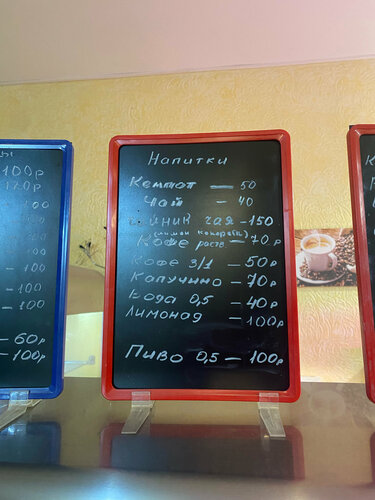 100р
170р
100
100
100
- 100
- 100
- 100
- 60р
- 100р
Напитки
Компот — 50
Чай - 40
чая - 150
Кофе раств - 70р
Кофе 3/1 - 50р
Капучино - 70р
Вода 0,5 - 40р
Лимонад - 100р
Пиво 0,5 - 100р